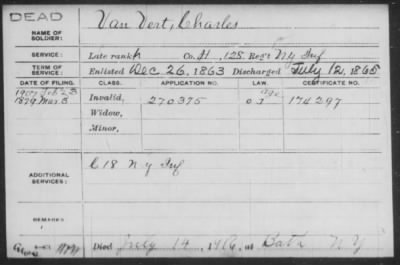 DEAD
NAME OF SOLDIER: Van Vert, Charles
SERVICE: Late rank Co. H, 128 Reg't N y Inf
TERM OF SERVICE: Enlisted Dec 26, 1863 Discharged July 12, 1865
DATE OF FILING. CLASS. APPLICATION NO. CERTIFICATE NO.
Feb 23
1879 Mar 5 Invalid, 270375 174297
Widow,
Minor,
ADDITIONAL SERVICES: C 18 N y Inf
REMARKS:
Died July 14, at Bath N Y